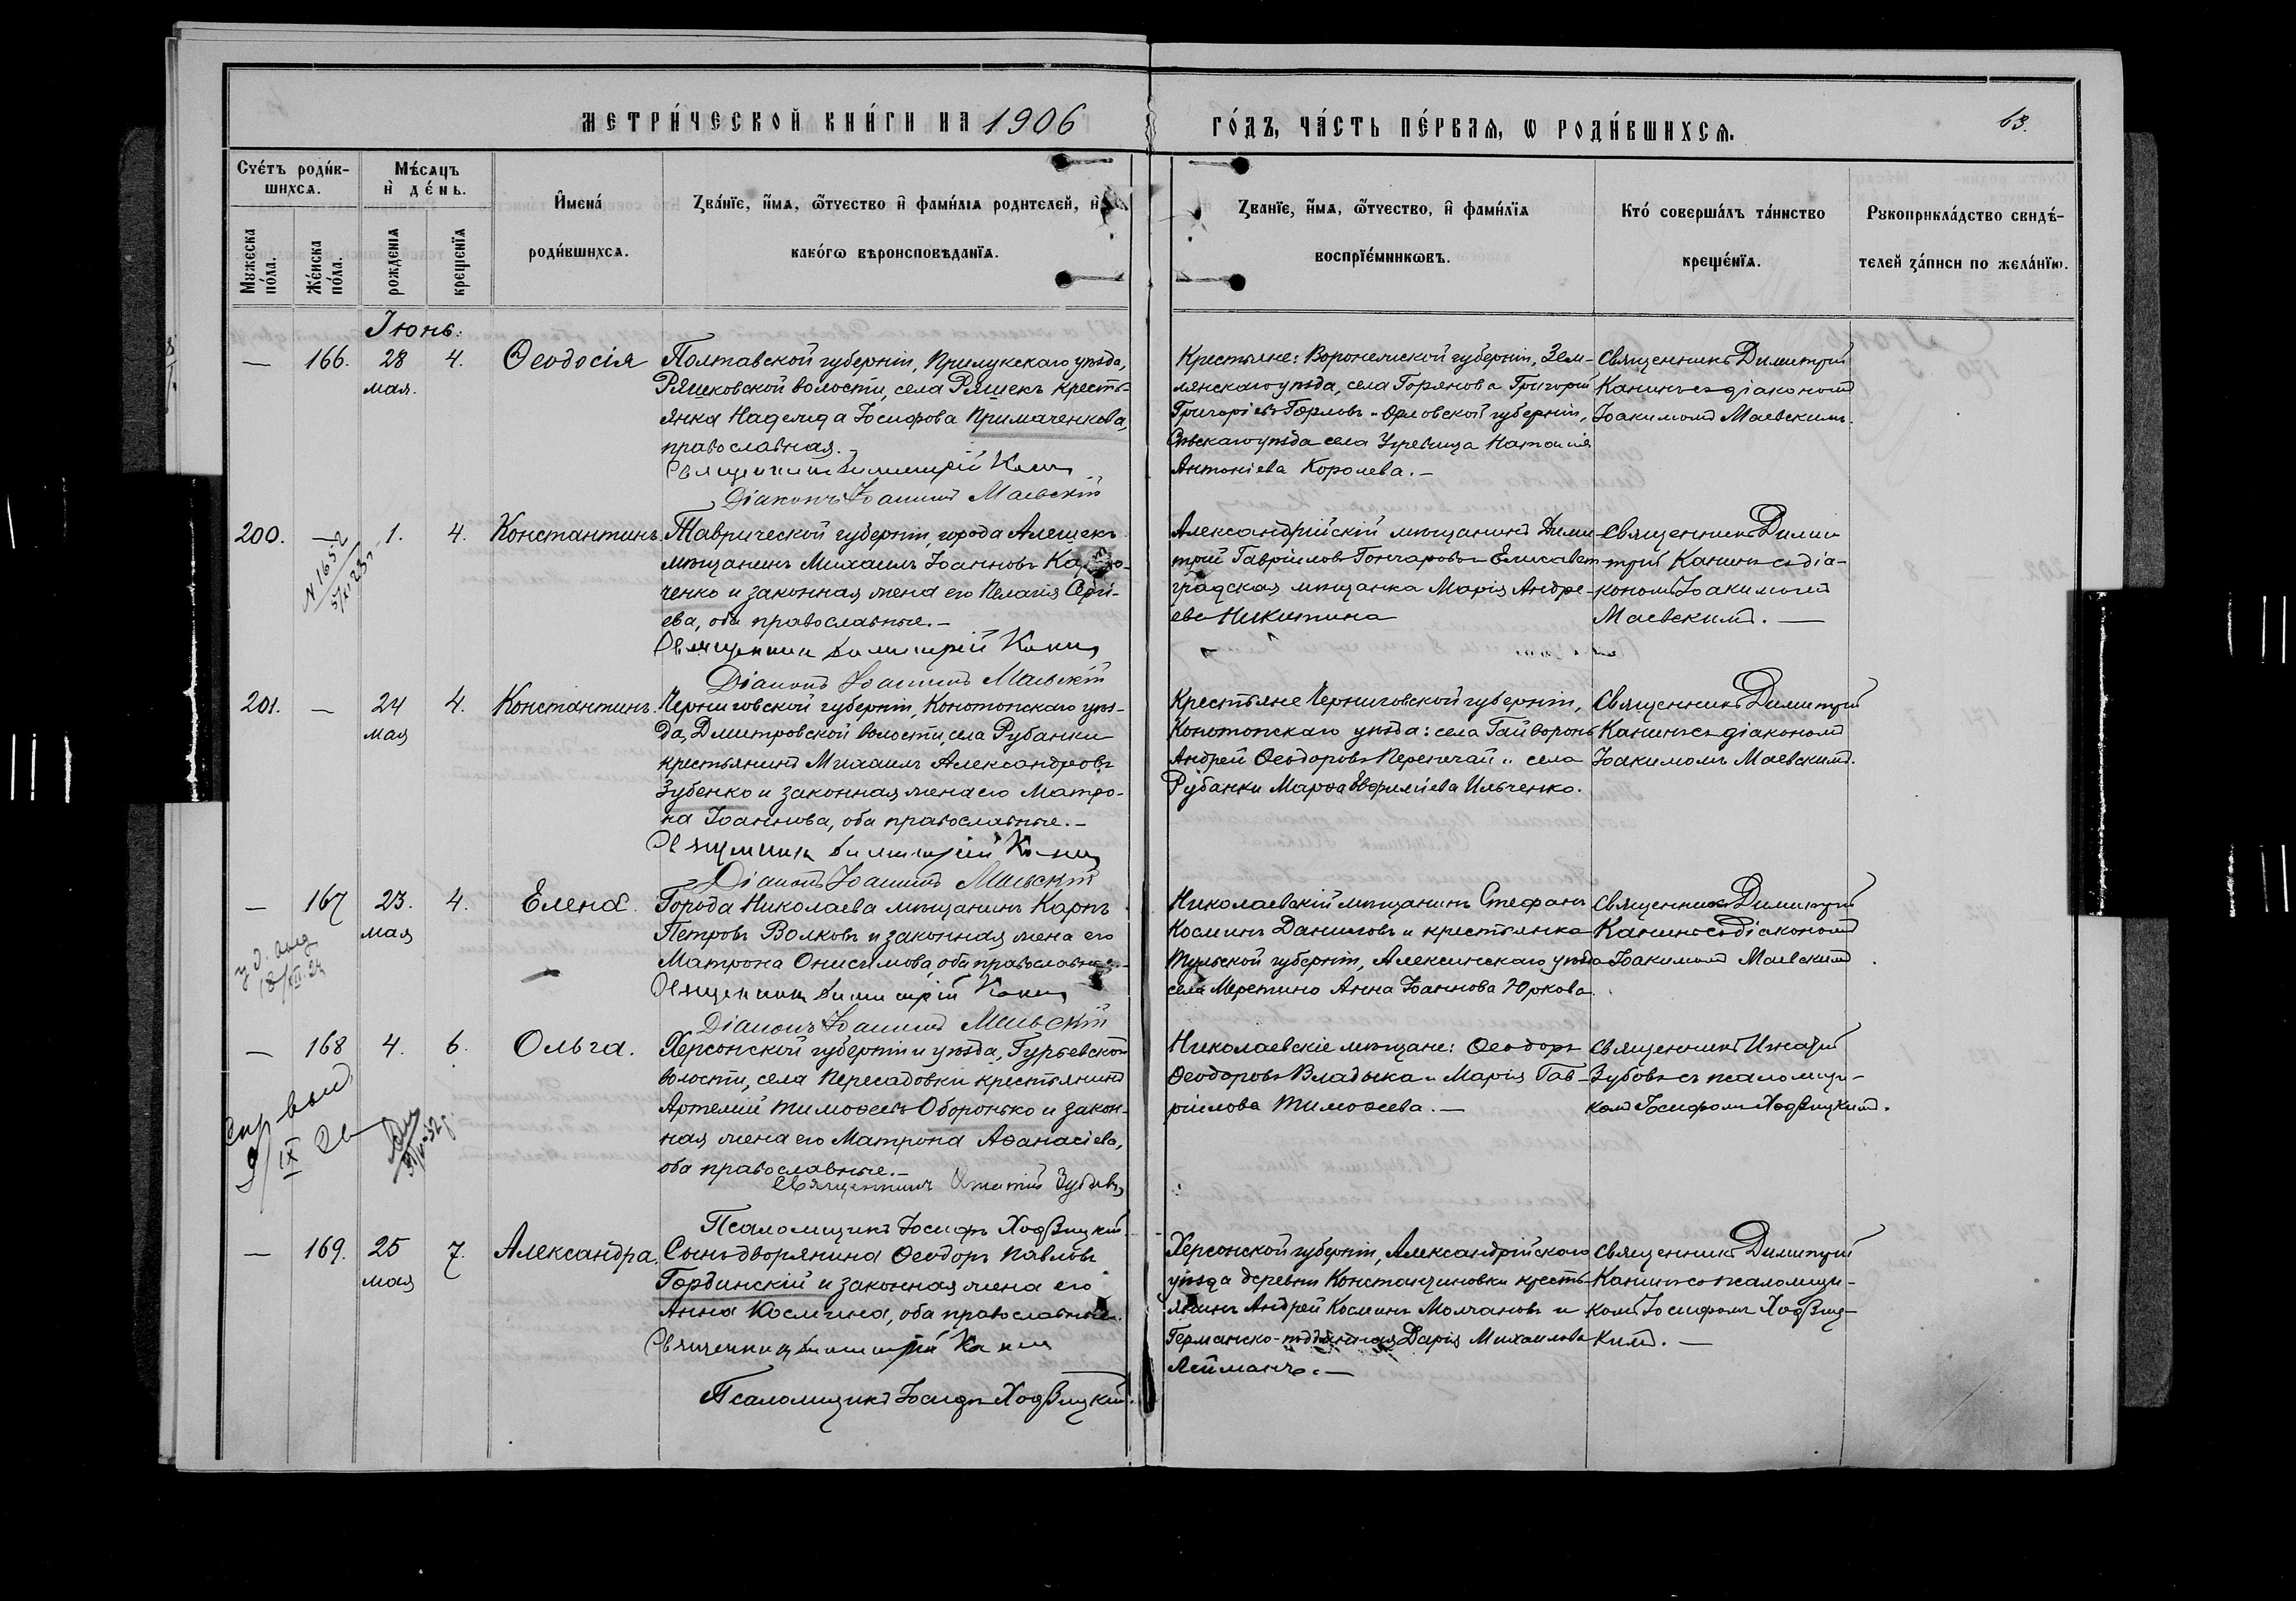 МЕТРИ́ЧЕСКОЙ КНИ́ГИ НА 1906
ГО́ДЪ, ЧА́СТЬ ПЕ́РВАѦ, Ѡ РОДИ́ВШИХСѦ.
63.
Счéтъ роди́в-
шихсѧ.
Мѣ́сѧцъ
и҆ де́нь.
Мꙋжеска
по́ла.
Же́нска
по́ла.
рожденїѧ
крещенїѧ
И҆мена́
роди́вшихсѧ.
Зва́нїе, и҆́мѧ, ѻ҆́тчество и҆ фамíлїѧ родителей, и҆
како́гѡ вѣроисповѣданїѧ.
Званїе, и҆́мѧ, ѻ҆́тчество, и҆ фамíлїѧ
воспрїе́мникѡвъ.
Кто́ соверша́лъ та́инство
креще́нїѧ.
Рꙋкоприкла́дство свидѣ́-
телей за́писи по жела́нїю.
Іюнь.
— 166. 28 мая. 4. Ѳеодосія
Полтавской губерніи, Прилукскаго уѣзда,
Ряшковской волости, села Ряшекъ кресть-
янка Надежда Іосифова Примаченкова,
православная.
Священникъ Димитрій Канинъ
Діаконъ Іоакимъ Маевскій
Крестьяне: Воронежской губерніи, Зем-
лянскаго уѣзда, села Горянова Григорій
Григоріевъ Горловъ и Орловской губерніи,
Сѣвскаго уѣзда села Наталія
Антоніева Королева. —
Священникъ Димитрій
Канинъ съ діакономъ
Іоакимомъ Маевскимъ.
200. — 1. 4. Константинъ.
N 1652
Таврической губерніи, города Алешекъ
мѣщанинъ Михаилъ Іоанновъ
ченко и законная жена его Пелагія Сергі-
ева, оба православные. —
Священникъ Димитрій Канинъ
Діаконъ Іоакимъ Маевскій
Александрійскій мѣщанинъ Дими-
трій Гавріиловъ Гончаровъ и Елисавет-
градская мѣщанка Марія Андре-
ева Никитина
Священникъ Дими-
трій Канинъ съ діа-
кономъ Іоакимомъ
Маевскимъ. —
201. — 24 мая 4. Константинъ.
Черниговской губерніи, Конотопскаго уѣз-
да, Дмитровской волости, села Рубанки
крестьянинъ Михаилъ Александровъ
Зубенко и законная жена его Матро-
на Іоаннова, оба православные. —
Священникъ Димитрій Канинъ
Діаконъ Іоакимъ Маевскій
Крестьяне Черниговской губерніи,
Конотопскаго уѣзда: села Гайворонъ
Андрей Ѳеодоровъ Перепечай и села
Рубанки Марѳа Евфиміева Ильченко.
Священникъ Димитрій
Канинъ съ діакономъ
Іоакимомъ Маевскимъ.
— 167 23. мая 4. Елена.
Города Николаева мѣщанинъ Карпъ
Петровъ Волковъ и законная жена его
Матрона Онисимова, оба православные. —
Священникъ Димитрій Канинъ
Діаконъ Іоакимъ Маевскій
Николаевскій мѣщанинъ Стефанъ
Косминъ Даниловъ и крестьянка
Тульской губерніи, Алексинскаго уѣзда
села Мерешино Анна Іоаннова Юркова.
Священникъ Димитрій
Канинъ съ діакономъ
Іоакимомъ Маевскимъ.
— 168 4. 6. Ольга.
Херсонской губерніи и уѣзда, Гурьевской
волости, села Пересадовки крестьянинъ
Артемій Тимоѳеевъ Оборонько и закон-
ная жена его Матрона Аѳанасіева,
оба православные. —
Священникъ Игнатій Зубовъ
Псаломщикъ Іосифъ Ходзицкій.
Николаевскіе мѣщане: Ѳеодоръ
Ѳеодоровъ Владыка и Марія Гав-
ріилова Тимоѳеева. —
Священникъ Игнатій
Зубовъ съ псаломщи-
комъ Іосифомъ Ходзицкимъ.
— 169. 25 мая 7. Александра.
Сынъ дворянина Ѳеодоръ Павловъ
Гординскій и законная жена его
Анна Космина, оба православные.
Священникъ Димитрій Канинъ
Псаломщикъ Іосифъ Ходзицкій.
Херсонской губерніи, Александрійскаго
уѣзда деревни Константиновки кресть-
янинъ Андрей Косминъ Молчановъ и
Германско-подданная Дарія Михаилова
Лейманъ. —
Священникъ Димитрій
Канинъ со псаломщи-
комъ Іосифомъ Ходзиц-
кимъ. —